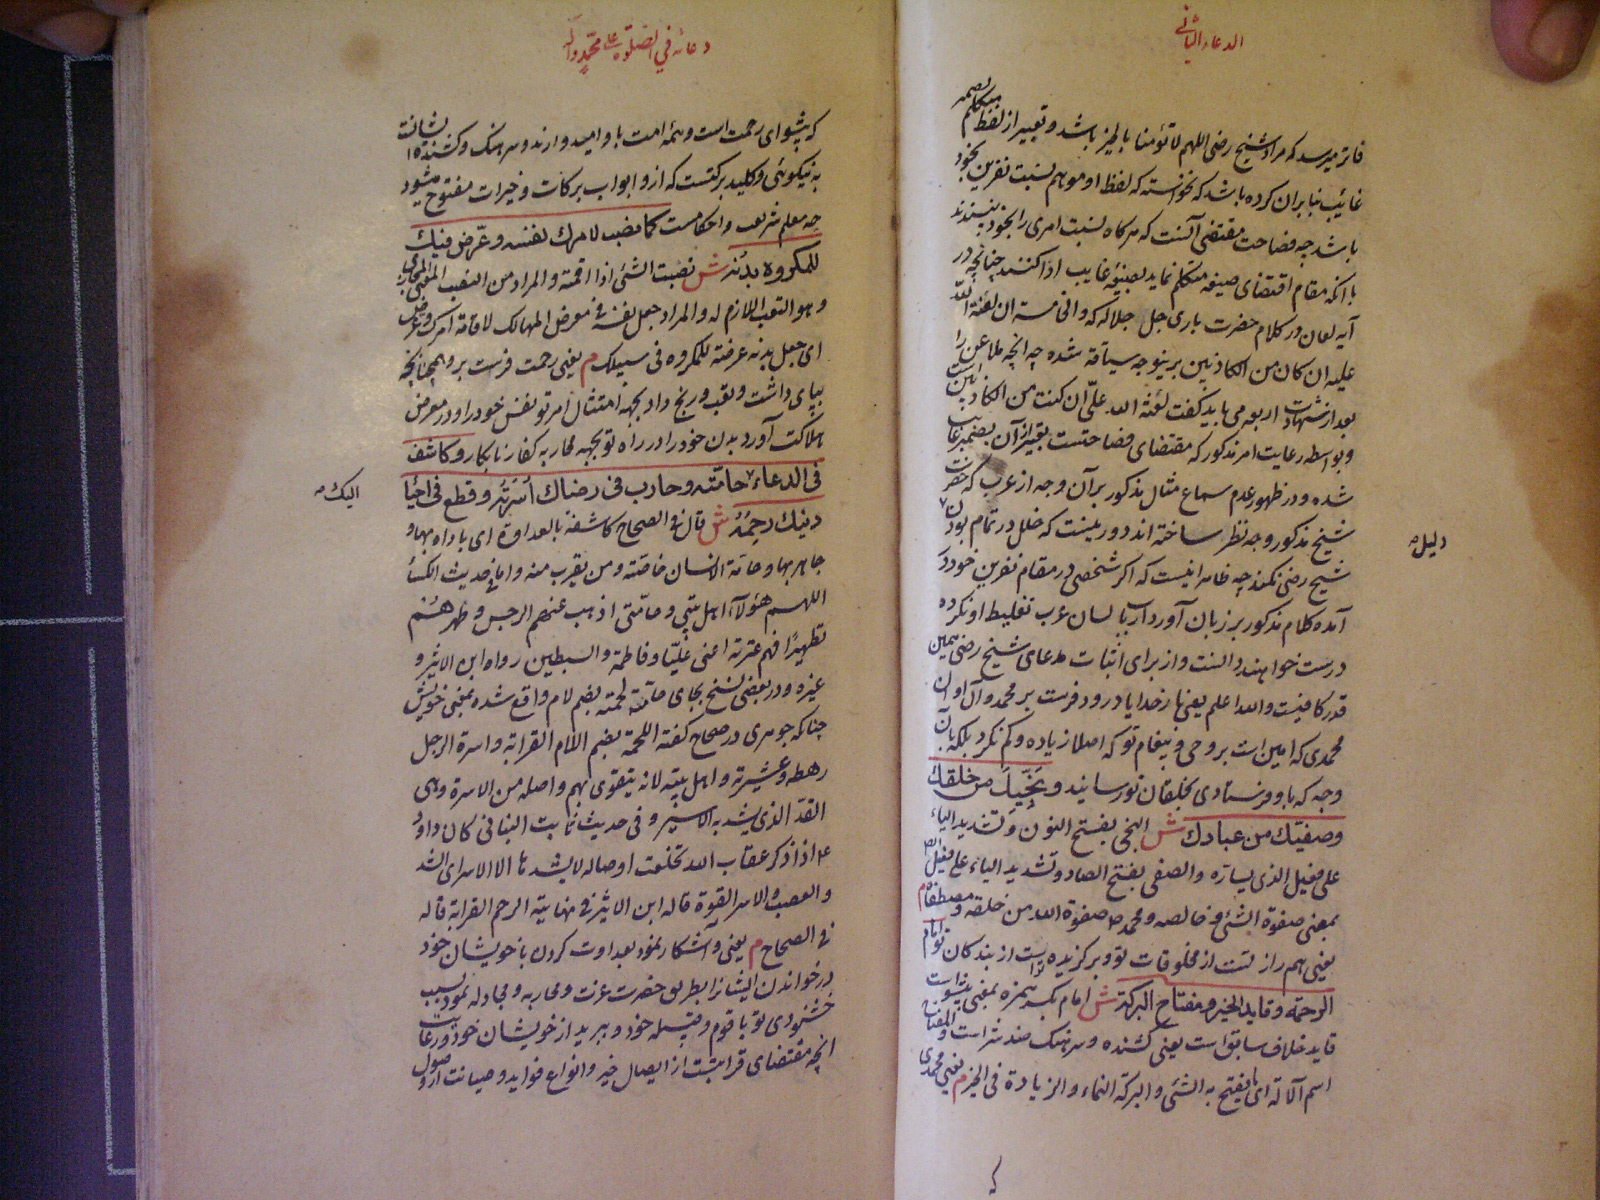 الدعاء الثاني
فاتر میرسد که مراد شیخ رضی اللهم لا تؤمنا بالخیر باشد و تعبیر از لفظ متکلم بضمیر
غائب بنا بران کرده باشد که نخواسته که لفظ او موهم نسبت نفرین بخود
باشد چه فصاحت مقتضی آنست که هرگاه نسبت امری را بخود نپسندند
با آنکه مقام اقتضای صیغه متکلم نماید بصیغه غایب ادا کنند چنانچه در
آیه لعان در کلام حضرت باری جل جلاله که والخامسة ان لعنة الله
علیه ان کان من الکاذبین برینوجه سیاقه شده چه آنچه ملاعن را
بعد از شهادت اربع می باید گفت لعنة الله علیّ ان کنت من الکاذبین است
و بواسطه رعایت امر مذکور که مقتضای فصاحتست تعبیر از آن بضمیر غایب
شده و در ظهور عدم سماع مثال مذکور بر آن وجه از عرب که حضرت
شیخ مذکور وجه نظر ساخته اند دور نیست که خلل در تمام بودن
دلیل
شیخ رضی نکند چه ظاهر اینست که اگر شخصی در مقام نفرین خود در
آمده کلام مذکور بر زبان آورد ارباب لسان عرب تغلیط او نکرده
درست خواهند دانست و از برای اثبات مدعای شیخ رضی همین
قدر کافیست والله اعلم یعنی بار خدایا درود فرست بر محمد و آل او آن
محمدی که امین است بر وحی و پیغام تو که اصلا زیاده و کم نکرد بلکه بآن
وجه که باو فرستادی بخلقان تو رسانید و نَجِیِّكَ من خلقك
وصفیك من عبادك ش النجی بفتح النون و تشدید الیاء
علی فعیل الذی یسارّه والصفی بفتح الصاد و تشدید الیاء علی فعیل
بمعنی صفوة الشئ خالصه و محمد ص صفوة الله من خلقه و مصطفاه م
یعنی هم راز تست از مخلوقات تو و برگزیده تو است از بندگان تو امام
الرحمة وقاید الخیر ومفتاح البركة ش امام بکسر همزه بمعنی پیشوا است
قاید خلاف سابق است یعنی کشنده و سرهنک ضد شر است والمفتاح
اسم آلالة ای ما یفتح به الشئ والبركة النماء والزیادة فی الخیر م یعنی محمدی
دعائه في الصلوة على محمد وآله
که پیشوای رحمت است و همه امت باو امیدوارند و سرهنک و کشنده ایشانست
به نیکوئی و کلید برکتست که ازو ابواب برکات و خیرات مفتوح میشود
چه معلم شریعت و احکامست كما نصب لامرك نفسه وعرّض فيك
للمكروه بدنه ش نصبت الشئ اذا اقمته والمراد من النصب المعنی المجازی
وهو التعب اللازم له والمراد جعل نفسه فی معرض المهالک لاقامة امرک وعرض
ای جعل بدنه عرضة للمکروه فی سبیلک م یعنی رحمت فرست برو همچنانچه
بپای داشت و تعب و رنج داد بجهة امتثال امر تو نفس خود را و در معرض
هلاکت آورد بدن خود را در راه تو بجهه محاربه کفار نابکار وكاشف
في الدعاء اليك حامته وحارب في رضاك اسرته وقطع في احياء
دينك رحمه ش قال فی الصحاح کاشفه بالعداوة ای باداه بها و
جاهر بها و حامة الانسان خاصّته و من یقرب منه و اما فی حدیث الکساء
اللهم هؤلآء اهل بیتی و حامّتی اذهب عنهم الرجس و طهرهم
تطهیرًا فهم عترته اعنی علیّا و فاطمة والسبطین رواه ابن الاثیر و
غیره و در بعضی نسخ بجای حامّته لحمته بضم لام واقع شده بمعنی خویش
چنانکه جوهری در صحاح گفته اللحمة بضم اللام القرابة و اسرة الرجل
رهطه و عشیرته و اهل بیته لانه یتقوی بهم و اصله من الاسرة وهی
القد الذی یشد به الاسیر و فی حدیث ثابت البنانی کان داود
ع اذا ذکر عقاب الله تخلعت اوصاله لا یشدها الا الاسر ای الشد
والعصب والاسر القوة قاله ابن الاثیر فی نهایته الرحم القرابة قاله
فی الصحاح م یعنی و آشکار نمود بعداوت کردن با خویشان خود
در خواندن ایشانرا بطریق حضرت عزت و محاربه و مجادله نمود بسبب
خشنودی تو با قوم و قبیله خود و ببرید از خویشان خود رعایت
آنچه مقتضای قرابتست از ایصال خیر و انواع فواید و صیانت از وصول